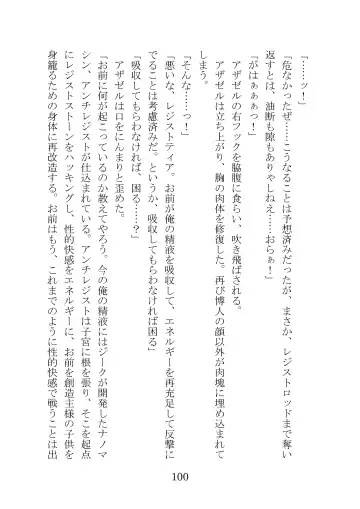 「……ッ！」
「危なかったぜ……こうなることは予想済みだったが、まさか、レジストロッドまで奪い
返すとは、油断も隙もありゃしねえ……おらぁ！」
「がはぁぁぁっ！」
アザゼルの右フックを脇腹に食らい、吹き飛ばされる。
アザゼルは立ち上がり、胸の肉体を修復した。再び博人の顔以外が肉塊に埋め込まれて
しまう。
「そんな……っ！」
「悪いな、レジスティア。お前が俺の精液を吸収して、エネルギーを再充足して反撃に
でることは考慮済みだ。というか、吸収してもらわなければ困る」
「吸収してもらわなければ、困る……？」
アザゼルは口をにんまりと歪めた。
「お前に何が起こっているのか教えてやろう。今の俺の精液にはジークが開発したナノマ
シン、アンチレジストが仕込まれている。アンチレジストは子宮に根を張り、そこを起点
にレジストストーンをハッキングし、性的快感をエネルギーに、お前を創造主様の子供を
身籠るための身体に再改造する。お前はもう、これまでのように性的快感で戦うことは出
100